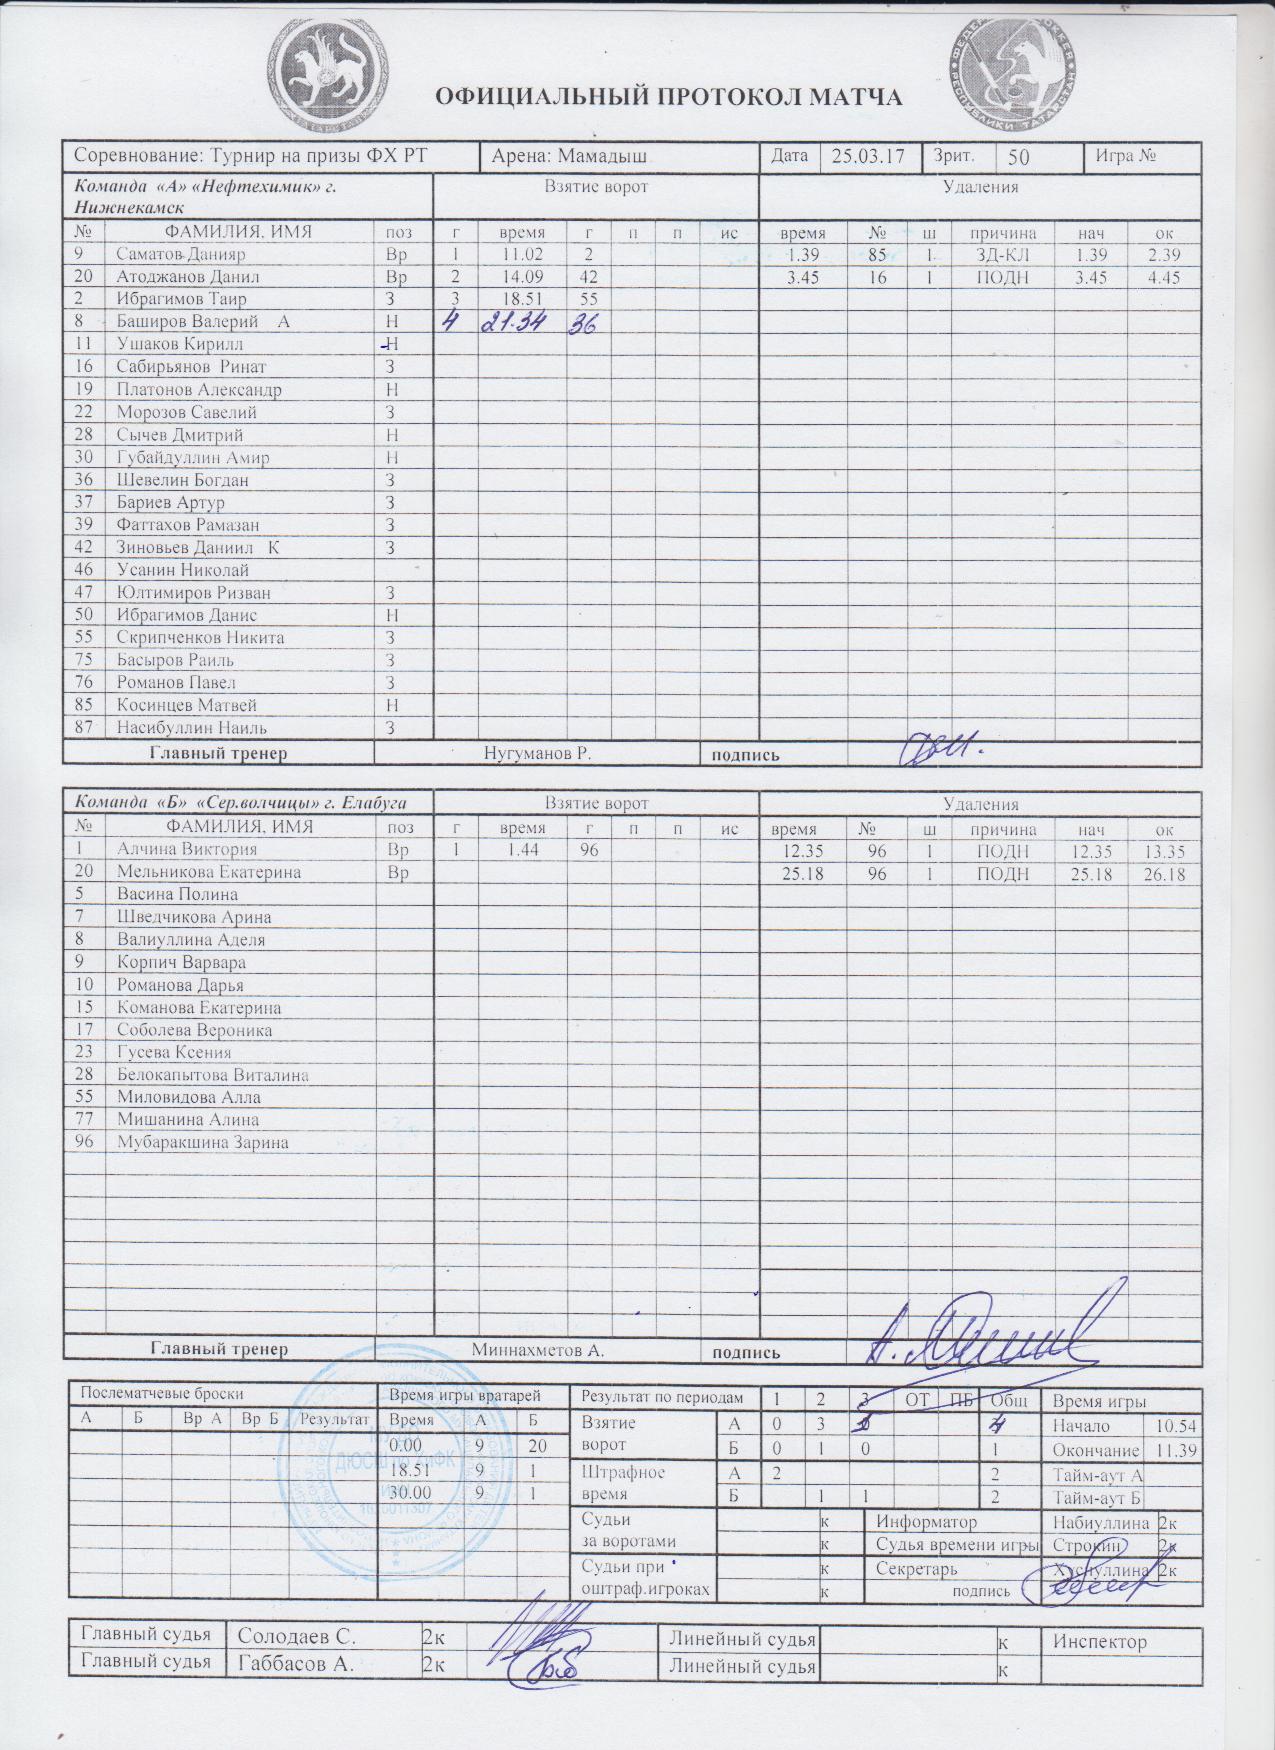 ФЕДЕРАЦИЯ ХОККЕЯ
РЕСПУБЛИКИ ТАТАРСТАН
ТАТАРСТАН
ОФИЦИАЛЬНЫЙ ПРОТОКОЛ МАТЧА
Соревнование: Турнир на призы ФХ РТ Арена: Мамадыш Дата 25.03.17 Зрит. 50 Игра №
Команда «А» «Нефтехимик» г. Нижнекамск Взятие ворот Удаления
№ ФАМИЛИЯ, ИМЯ поз г время г п п ис время № ш причина нач ок
9 Саматов Данияр Вр 1 11.02 2 1.39 85 1 ЗД-КЛ 1.39 2.39
20 Атоджанов Данил Вр 2 14.09 42 3.45 16 1 ПОДН 3.45 4.45
2 Ибрагимов Таир З 3 18.51 55
8 Баширов Валерий А Н 4 21.34 36
11 Ушаков Кирилл Н
16 Сабирьянов Ринат З
19 Платонов Александр Н
22 Морозов Савелий З
28 Сычев Дмитрий Н
30 Губайдуллин Амир Н
36 Шевелин Богдан З
37 Бариев Артур З
39 Фаттахов Рамазан З
42 Зиновьев Даниил К З
46 Усанин Николай
47 Юлтимиров Ризван З
50 Ибрагимов Данис Н
55 Скрипченков Никита З
75 Басыров Раиль З
76 Романов Павел З
85 Косинцев Матвей Н
87 Насибуллин Наиль З
Главный тренер Нугуманов Р. подпись
Команда «Б» «Сер.волчицы» г. Елабуга Взятие ворот Удаления
№ ФАМИЛИЯ, ИМЯ поз г время г п п ис время № ш причина нач ок
1 Алчина Виктория Вр 1 1.44 96 12.35 96 1 ПОДН 12.35 13.35
20 Мельникова Екатерина Вр 25.18 96 1 ПОДН 25.18 26.18
5 Васина Полина
7 Шведчикова Арина
8 Валиуллина Аделя
9 Корпич Варвара
10 Романова Дарья
15 Команова Екатерина
17 Соболева Вероника
23 Гусева Ксения
28 Белокапытова Виталина
55 Миловидова Алла
77 Мишанина Алина
96 Мубаракшина Зарина
Главный тренер Миннахметов А. подпись
Послематчевые броски Время игры вратарей Результат по периодам 1 2 3 ОТ ПБ Общ Время игры
А Б Вр А Вр Б Результат Время А Б Взятие ворот А 0 3 1 4 Начало 10.54
0.00 9 20 Б 0 1 0 1 Окончание 11.39
18.51 9 1 Штрафное время А 2 2 Тайм-аут А
30.00 9 1 Б 1 1 2 Тайм-аут Б
Судьи за воротами к Информатор Набиуллина 2к
к Судья времени игры Строкин 2к
Судьи при оштраф.игроках к Секретарь Хуснуллина 2к
к подпись
ДЮСШ
Главный судья Солодаев С. 2к Линейный судья к Инспектор
Главный судья Габбасов А. 2к Линейный судья к